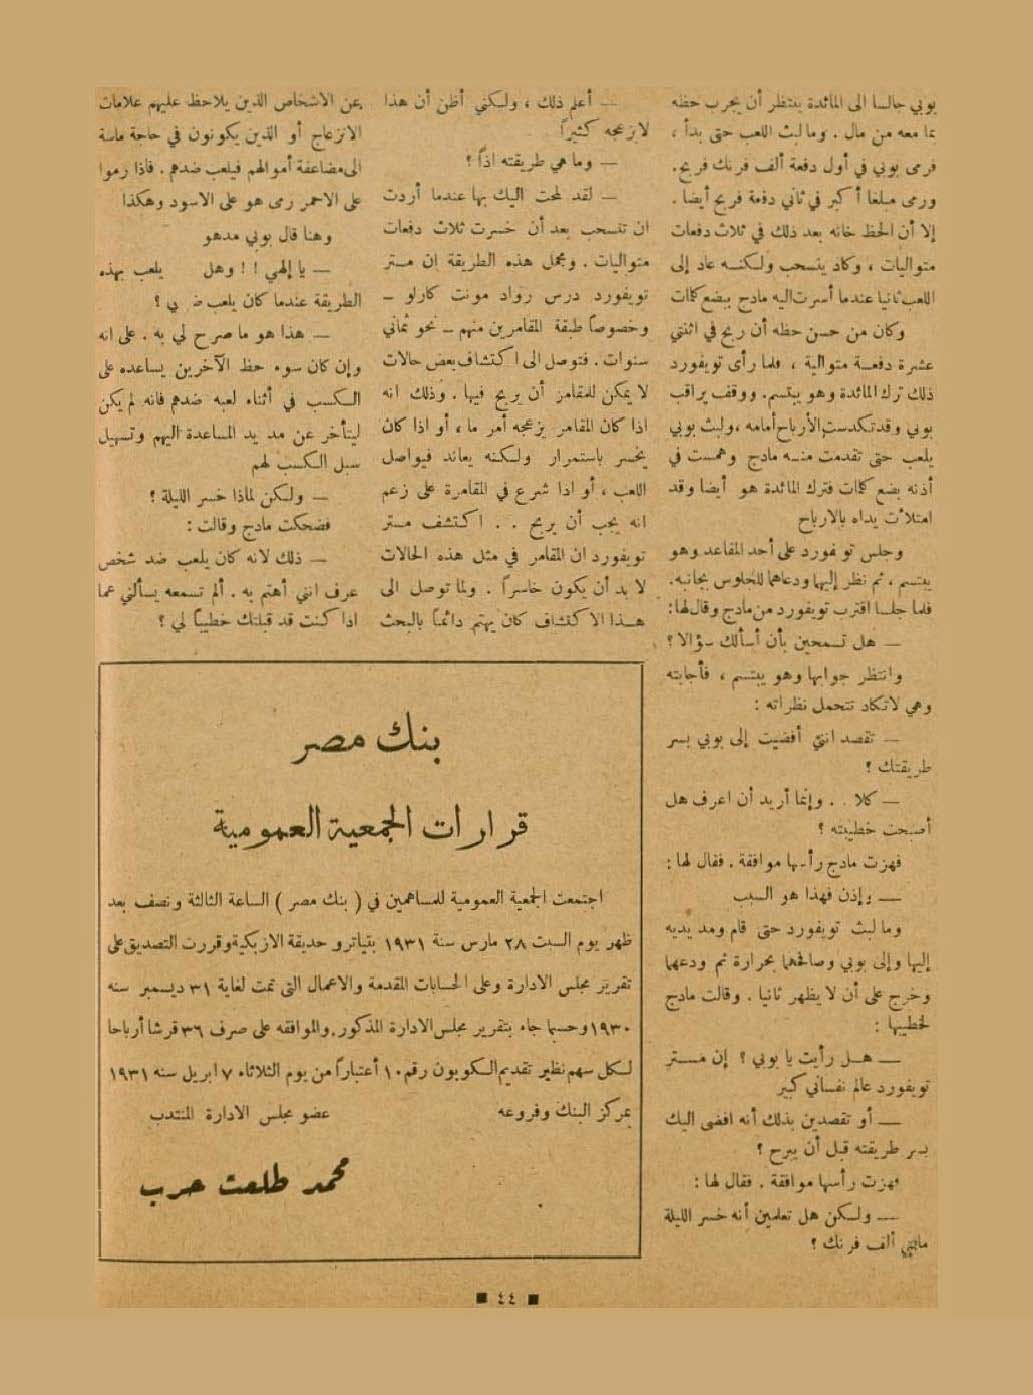 بوبي جالسا الى المائدة ينتظر أن يجرب حظه
بما معه من مال . وما لبث اللعب حتى بدأ ،
فرمى بوبي في أول دفعة ألف فرنك فربح .
ورمى مبلغا أكبر في ثاني دفعة فربح أيضا .
إلا أن الحظ خانه بعد ذلك في ثلاث دفعات
متواليات ، وكاد ينسحب ولكنه عاد إلى
اللعب ثانيا عندما أسرت اليه مادج ببضع كلمات
وكان من حسن حظه أن ربح في اثنتي
عشرة دفعة متوالية ، فلما رأى تويفورد
ذلك ترك المائدة وهو يبتسم . ووقف يراقب
بوبي وقد تكدست الأرباح أمامه ، ولبث بوبي
يلعب حتى تقدمت منه مادج وهمست في
أذنه بضع كلمات فترك المائدة هو أيضا وقد
امتلأت يداه بالارباح
وجلس تويفورد على أحد المقاعد وهو
يبتسم ، ثم نظر إليها ودعاهما للجلوس بجانبه .
فلما جلسا اقترب تويفورد من مادج وقال لها :
— هل تسمحين بأن أسألك سؤالا ؟
وانتظر جوابها وهو يبتسم ، فأجابته
وهي لا تكاد تتحمل نظراته :
— تقصد انني أفضيت إلى بوبي بسر
طريقتك ؟
— كلا . . وإنما أريد أن اعرف هل
أصبحت خطيبته ؟
فهزت مادج رأسها موافقة . فقال لها :
— وإذن فهذا هو السبب
وما لبث تويفورد حتى قام ومد يديه
إليها وإلى بوبي وصافحهما بحرارة ثم ودعهما
وخرج على أن لا يظهر ثانيا . وقالت مادج
لخطيبها :
— هل رأيت يا بوبي ؟ إن مستر
تويفورد عالم نفساني كبير
— أو تقصدين بذلك أنه افضى اليك
بسر طريقته قبل أن يبرح ؟
فهزت رأسها موافقة . فقال لها :
— ولكن هل تعلمين أنه خسر الليلة
مائتي ألف فرنك ؟
— أعلم ذلك ، ولكني أظن أن هذا
لا يزعجه كثيراً
— وما هي طريقته اذاً ؟
— لقد لمحت اليك بها عندما أردت
ان تنسحب بعد أن خسرت ثلاث دفعات
متواليات . ومجمل هذه الطريقة ان مستر
تويفورد درس رواد مونت كارلو —
وخصوصاً طبقة المقامرين منهم — نحو ثماني
سنوات . فتوصل الى اكتشاف بعض حالات
لا يمكن للمقامر أن يربح فيها . وذلك انه
اذا كان المقامر يزعجه أمر ما ، أو اذا كان
يخسر باستمرار ولكنه يعاند فيواصل
اللعب ، أو اذا شرع في المقامرة على زعم
انه يجب أن يربح . . اكتشف مستر
تويفورد ان المقامر في مثل هذه الحالات
لا بد أن يكون خاسراً . ولما توصل الى
هذا الاكتشاف كان يهتم دائماً بالبحث
عن الاشخاص الذين يلاحظ عليهم علامات
الانزعاج أو الذين يكونون في حاجة ماسة
الى مضاعفة أموالهم فيلعب ضدهم . فاذا رموا
على الاحمر رمى هو على الاسود وهكذا
وهنا قال بوبي مدهو
— يا إلهي ! ! وهل يلعب بهذه
الطريقة عندما كان يلعب ضدي ؟
— هذا هو ما صرح لي به . على انه
وإن كان سوء حظ الآخرين يساعده على
الكسب في أثناء لعبه ضدهم فانه لم يكن
ليتأخر عن مد يد المساعدة اليهم وتسهيل
سبل الكسب لهم
— ولكن لماذا خسر الليلة ؟
فضحكت مادج وقالت :
— ذلك لانه كان يلعب ضد شخص
عرف انني أهتم به . ألم تسمعه يسألني عما
اذا كنت قد قبلتك خطيباً لي ؟
بنك مصر
قرارات الجمعية العمومية
اجتمعت الجمعية العمومية للمساهمين في ( بنك مصر ) الساعة الثالثة ونصف بعد
ظهر يوم السبت ٢٨ مارس سنة ١٩٣١ بتياترو حديقة الازبكية وقررت التصديق على
تقرير مجلس الادارة وعلى الحسابات المقدمة والاعمال التي تمت لغاية ٣١ ديسمبر سنه
١٩٣٠ وحسبما جاء بتقرير مجلس الادارة المذكور . والموافقه على صرف ٣٦ قرشا أرباحا
لكل سهم نظير تقديم الكوبون رقم ١٠ أعتباراً من يوم الثلاثاء ٧ ابريل سنه ١٩٣١
بمركز البنك وفروعه
عضو مجلس الادارة المنتدب
محمد طلعت حرب
٤٤